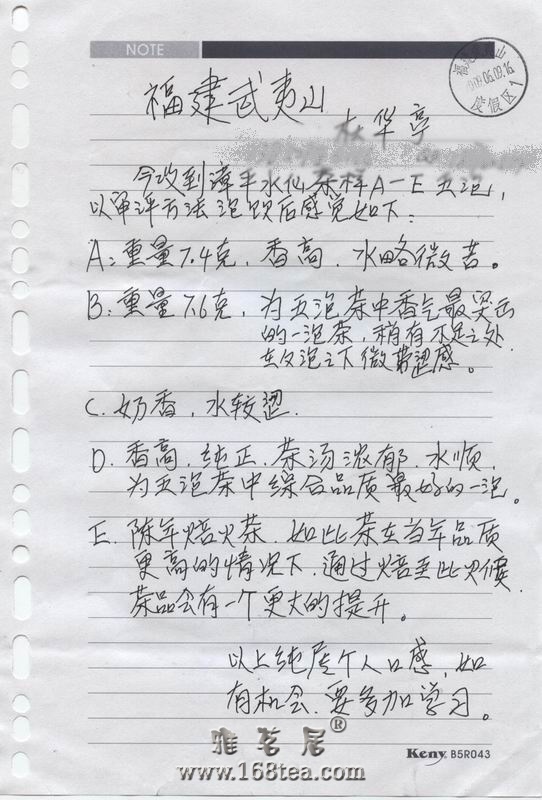 NOTE
福建武夷山
林华亭
2009.06.09.16
度假区1
今收到漳平水仙茶样A-E五泡，
以审评方法泡饮后感觉如下：
A：重量7.4克，香高，水略微苦。
B：重量7.6克，为五泡茶中香气最突出
的一泡茶，稍有不足之处
在久泡之下微带涩感。
C．奶香，水较涩．
D．香高，纯正，茶汤浓郁，水顺，
为五泡茶中综合品质最好的一泡。
E．陈年焙火茶．如此茶在当年品质
更高的情况下，通过焙至此火候，
茶品会有一个更大的提升。
以上纯属个人口感，如
有机会，要多加学习。
雅茗居®
www.168tea.com
Keny B5R043